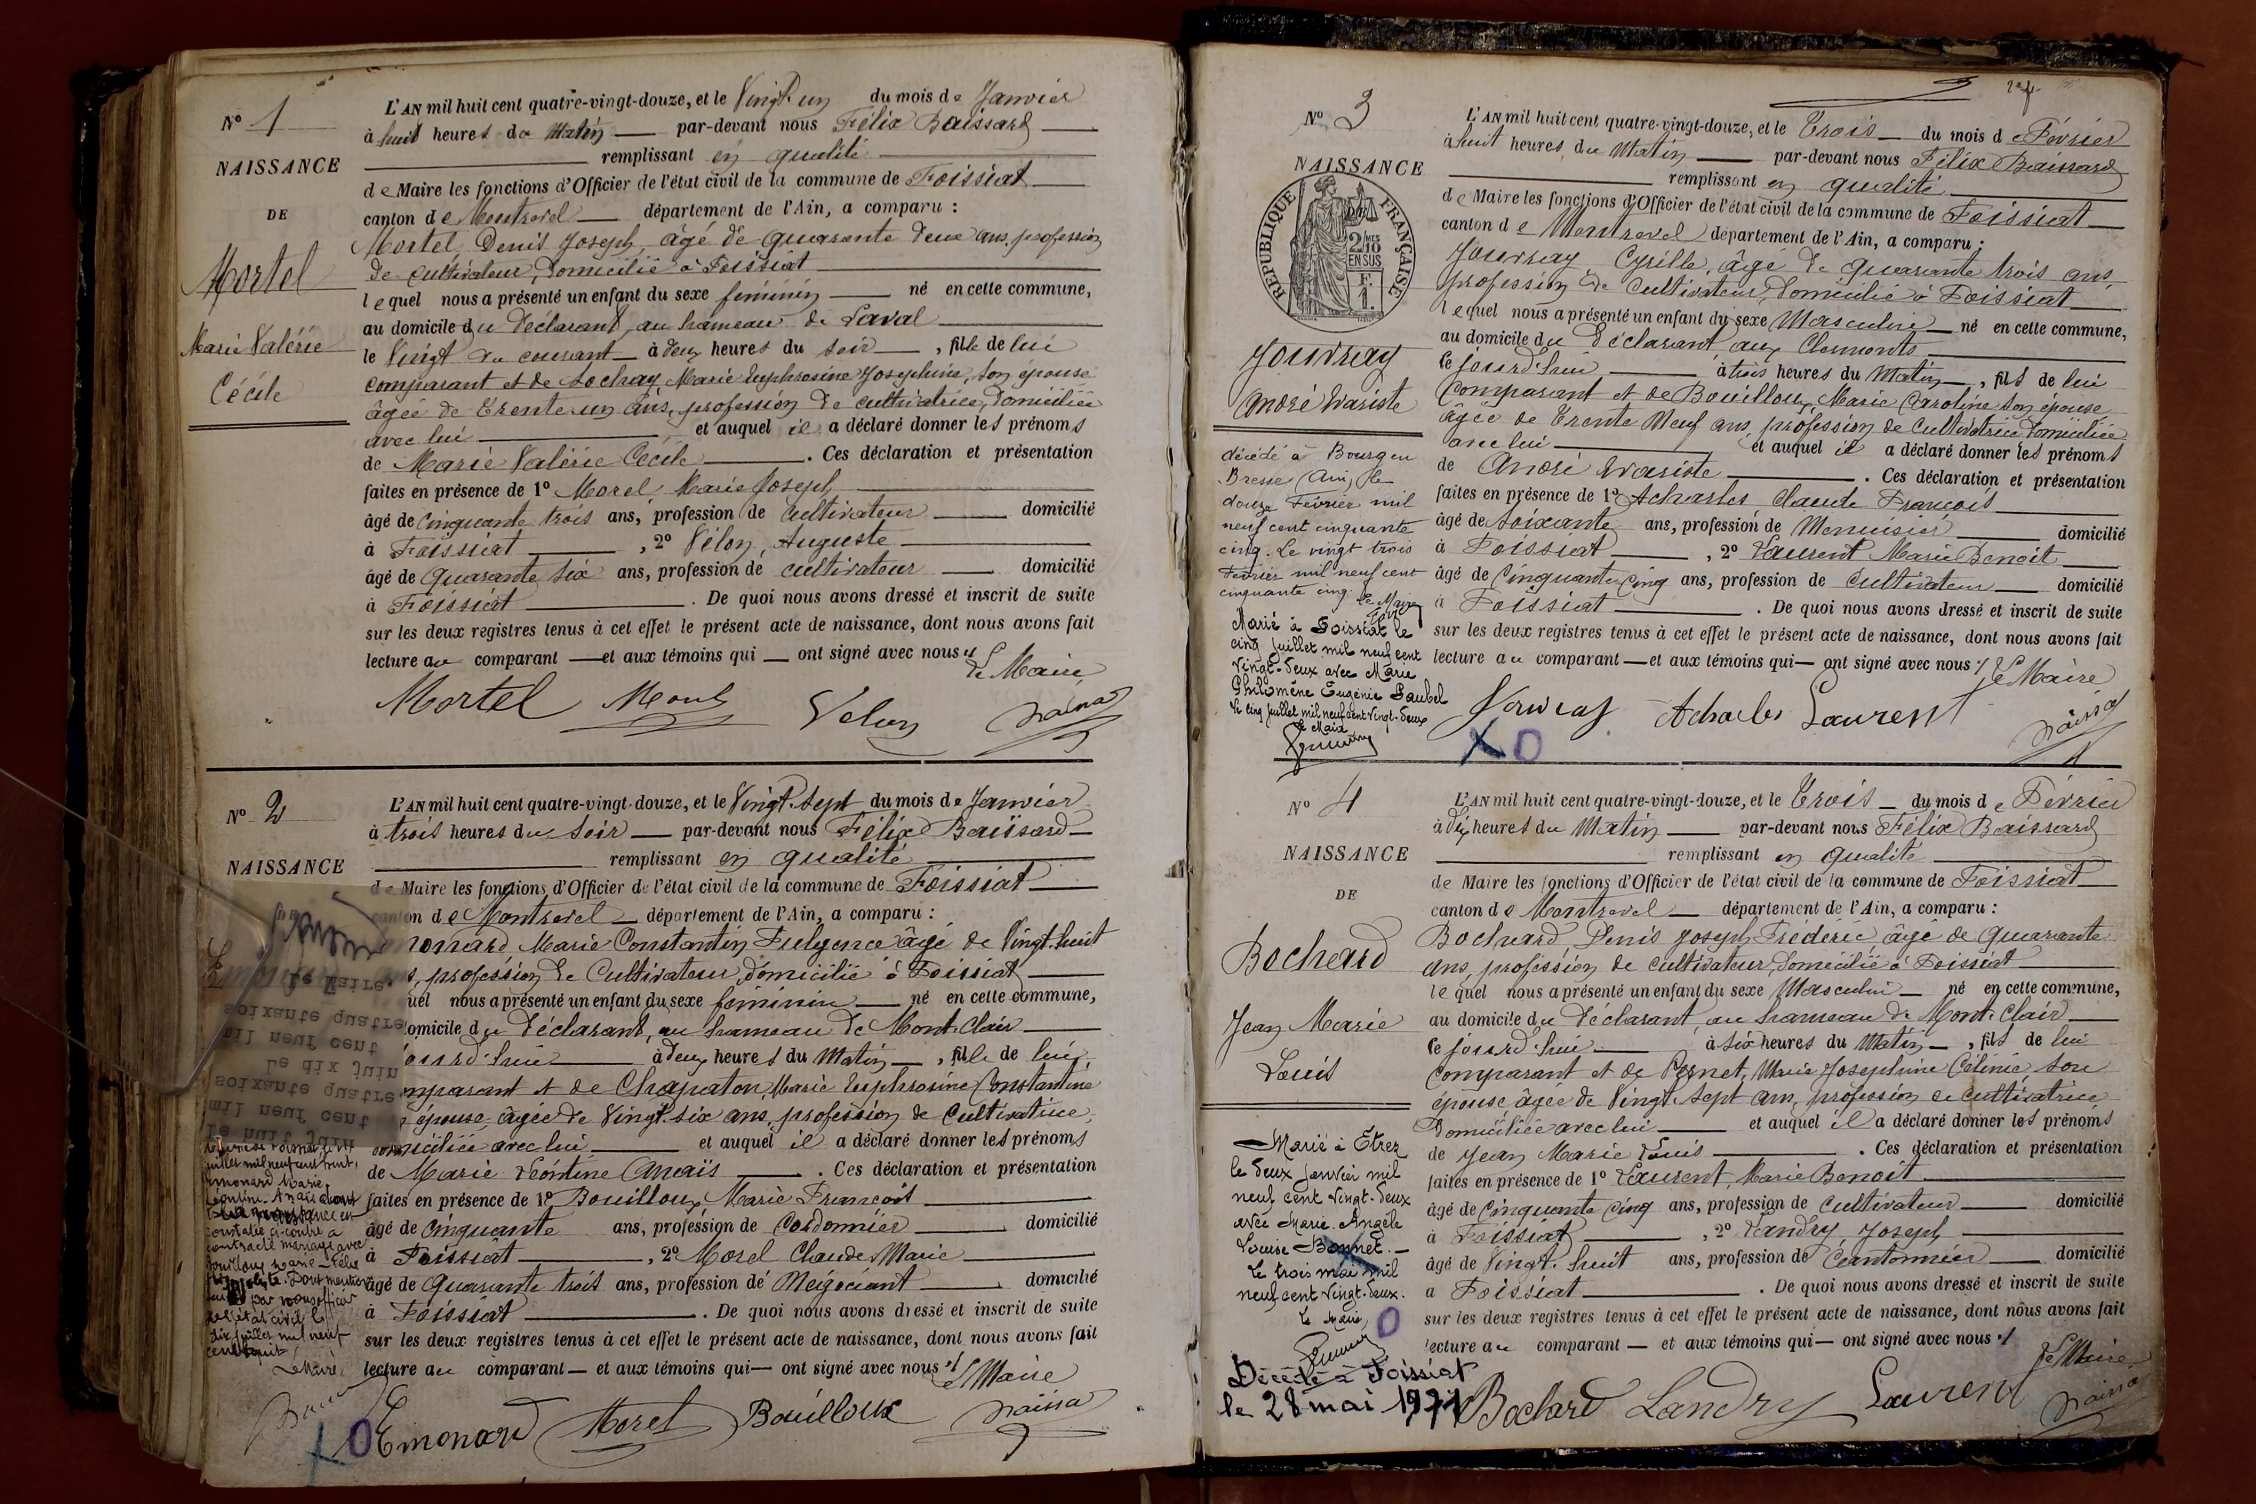 N° 1
NAISSANCE
DE
Mortel
Marie Valérie
Cécile
L'AN mil huit cent quatre-vingt-douze, et le Vingt un du mois de Janvier
à huit heures du Matin par-devant nous Félix Baissard
remplissant en qualité
de Maire les fonctions d'Officier de l'état civil de la commune de Foissiat
canton de Montrevel département de l'Ain, a comparu :
Mortel, Denis Joseph, âgé de quarante deux ans, profession
de cultivateur, domicilié à Foissiat
lequel nous a présenté un enfant du sexe féminin né en cette commune,
au domicile du déclarant, au hameau de Laval
le Vingt du courant à deux heures du soir, fille de lui
comparant et de Sochay, Marie Euphrosine Joséphine, son épouse
âgée de Trente un ans, profession de cultivatrice, domiciliée
avec lui et auquel il a déclaré donner les prénoms
de Marie Valérie Cécile. Ces déclaration et présentation
faites en présence de 1° Morel Marie Joseph
âgé de cinquante trois ans, profession de cultivateur domicilié
à Foissiat, 2° Vélon, Auguste
âgé de quarante six ans, profession de cultivateur domicilié
à Foissiat. De quoi nous avons dressé et inscrit de suite
sur les deux registres tenus à cet effet le présent acte de naissance, dont nous avons fait
lecture au comparant et aux témoins qui ont signé avec nous
Le Maire
Mortel Morel Velon
N° 2
NAISSANCE
L'AN mil huit cent quatre-vingt-douze, et le Vingt-sept du mois de Janvier
à trois heures du soir par-devant nous Félix Baissard
remplissant en qualité
de Maire les fonctions d'Officier de l'état civil de la commune de Foissiat
canton de Montrevel département de l'Ain, a comparu :
monard Marie Constantin Fulgence âgé de Vingt-huit
s, profession de Cultivateur, domicilié à Foissiat
uel nous a présenté un enfant du sexe féminin né en cette commune,
omicile du déclarant, au hameau de Mont-Clair
ourd'hui à deux heures du Matin, fille de lui
mparant et de Chapaton, Marie Euphrosine Constantine
épouse, âgée de Vingt-six ans, profession de Cultivatrice,
domiciliée avec lui et auquel il a déclaré donner les prénoms
de Marie Léontine Anaïs. Ces déclaration et présentation
faites en présence de 1° Bouilloux, Marie François
âgé de cinquante ans, profession de Cordonnier domicilié
à Foissiat, 2° Morel Claude Marie
âgé de quarante trois ans, profession de Négociant domicilié
à Foissiat. De quoi nous avons dressé et inscrit de suite
sur les deux registres tenus à cet effet le présent acte de naissance, dont nous avons fait
lecture au comparant et aux témoins qui ont signé avec nous
Le Maire
Emonard Morel Bouilloux
Le Maire.
soixante quatre
mil neuf cent
Le dix juin
soixante quatre
mil neuf cent
le huit juin
contracté mariage avec
Le Maire
N° 3
NAISSANCE
RÉPUBLIQUE FRANÇAISE
2/10 MES
EN SUS
Jouvray
André Evariste
décédé à Bourg en
Bresse (Ain) le
douze Février mil
neuf cent cinquante
cinq. Le vingt trois
Février mil neuf cent
cinquante cinq. Le Maire
Marié à Foissiat le
cinq juillet mil neuf cent
vingt-deux avec Marie
Philomène Eugénie Paubel
Le cinq juillet mil neuf cent vingt-deux
Le Maire
L'AN mil huit cent quatre-vingt-douze, et le Trois du mois de Février
à huit heures du Matin par-devant nous Félix Baissard
remplissant en qualité
de Maire les fonctions d'Officier de l'état civil de la commune de Foissiat
canton de Montrevel département de l'Ain, a comparu :
Jouvray Cyrille, âgé de quarante trois ans,
profession de Cultivateur, domicilié à Foissiat
lequel nous a présenté un enfant du sexe Masculin né en cette commune,
au domicile du déclarant, aux Clermonts
ce jourd'hui à trois heures du Matin, fils de lui
comparant et de Bouilloux, Marie Caroline son épouse
âgée de Trente Neuf ans, profession de Cultivatrice domiciliée
avec lui et auquel il a déclaré donner les prénoms
de André Evariste. Ces déclaration et présentation
faites en présence de 1° Acharles Claude François
âgé de soixante ans, profession de Menuisier domicilié
à Foissiat, 2° Laurent Marie Benoît
âgé de Cinquante Cinq ans, profession de Cultivateur domicilié
à Foissiat. De quoi nous avons dressé et inscrit de suite
sur les deux registres tenus à cet effet le présent acte de naissance, dont nous avons fait
lecture au comparant et aux témoins qui ont signé avec nous
Le Maire
Jouvray Acharles Laurent
N° 4
NAISSANCE
DE
Bochard
Jean Marie
Louis
Marié à Etrez
le deux janvier mil
neuf cent vingt-deux
avec Marie Angèle
Louise Bonnet.
Le trois mai mil
neuf cent vingt-deux.
Le Maire
Décédé à Foissiat
le 28 mai 1971
L'AN mil huit cent quatre-vingt-douze, et le Trois du mois de Février
à dix heures du Matin par-devant nous Félix Baissard
remplissant en qualité
de Maire les fonctions d'Officier de l'état civil de la commune de Foissiat
canton de Montrevel département de l'Ain, a comparu :
Bochard, Denis Joseph Frédéric âgé de quarante
ans, profession de cultivateur, domicilié à Foissiat
lequel nous a présenté un enfant du sexe Masculin né en cette commune,
au domicile du déclarant, au hameau de Mont-Clair
ce jourd'hui à six heures du Matin, fils de lui
comparant et de Pernet, Marie Joséphine Célinie son
épouse âgée de Vingt-sept ans, profession de cultivatrice
domiciliée avec lui et auquel il a déclaré donner les prénoms
de Jean Marie Louis. Ces déclaration et présentation
faites en présence de 1° Laurent, Marie Benoît
âgé de Cinquante Cinq ans, profession de Cultivateur domicilié
à Foissiat, 2° Landry, Joseph
âgé de Vingt-huit ans, profession de Cantonnier domicilié
à Foissiat. De quoi nous avons dressé et inscrit de suite
sur les deux registres tenus à cet effet le présent acte de naissance, dont nous avons fait
lecture au comparant et aux témoins qui ont signé avec nous
Le Maire
Bochard Landry Laurent